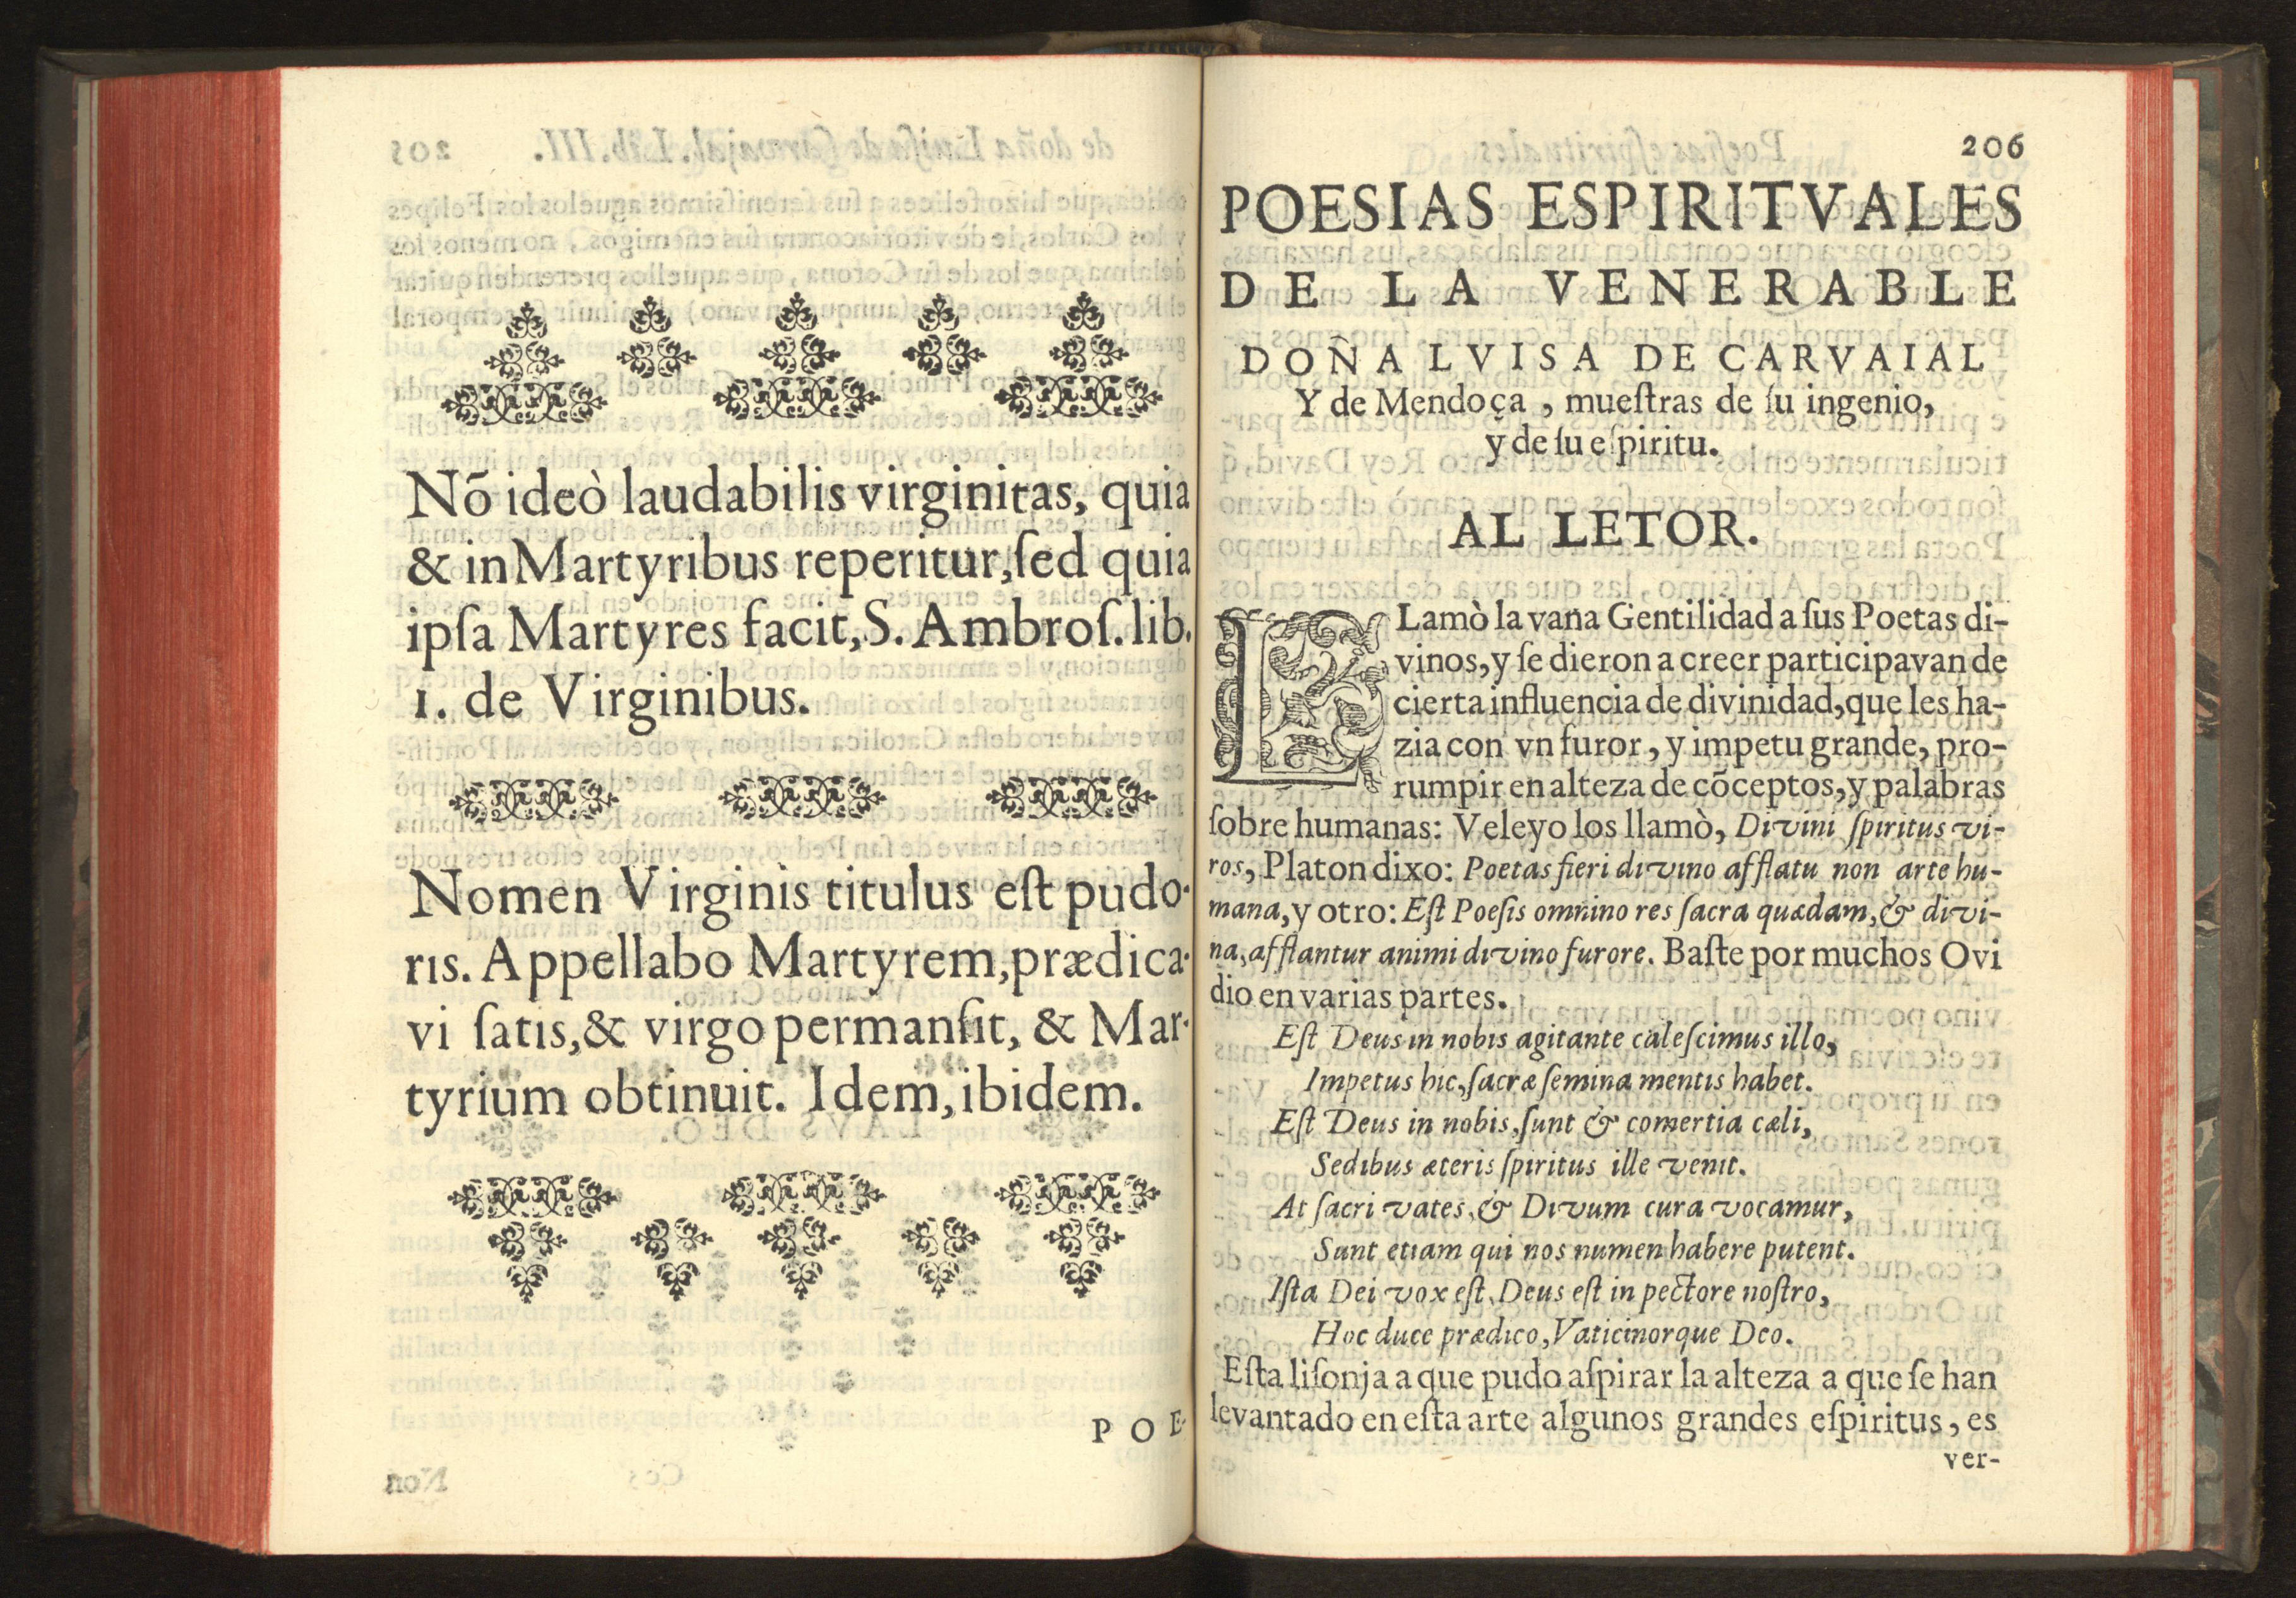 Nõ ideò laudabilis virginitas, quia
& in Martyribus reperitur, ſed quia
ipſa Martyres facit, S. Ambroſ. lib.
1. de Virginibus.
Nomen Virginis titulus eſt pudo-
ris. Appellabo Martyrem, prædica-
vi ſatis, & virgo permanſit, & Mar-
tyrium obtinuit. Idem, ibidem.
POE-
206
POESIAS ESPIRITVALES
DE LA VENERABLE
DOÑA LVISA DE CARVAIAL
Y de Mendoça, mueſtras de ſu ingenio,
y de ſu eſpiritu.
AL LETOR.
LLamò la vana Gentilidad a ſus Poetas di-
vinos, y ſe dieron a creer participavan de
cierta influencia de divinidad, que les ha-
zia con vn furor, y impetu grande, pro-
rumpir en alteza de cõceptos, y palabras
ſobre humanas: Veleyo los llamò, Divini ſpiritus vi-
ros, Platon dixo: Poetas fieri divino afflatu non arte hu-
mana, y otro: Eſt Poeſis omnino res ſacra quædam, & divi-
na, afflantur animi divino furore. Baſte por muchos Ovi
dio en varias partes.
Eſt Deus in nobis agitante caleſcimus illo,
Impetus hic, ſacræ ſemina mentis habet.
Eſt Deus in nobis, ſunt & comertia cæli,
Sedibus æteris ſpiritus ille venit.
At ſacri vates, & Divum cura vocamur,
Sunt etiam qui nos numen habere putent.
Iſta Dei vox eſt, Deus eſt in pectore noſtro,
Hoc duce prædico, Vaticinorque Deo.
Eſta liſonja a que pudo aſpirar la alteza a que ſe han
levantado en eſta arte algunos grandes eſpiritus, es
ver-